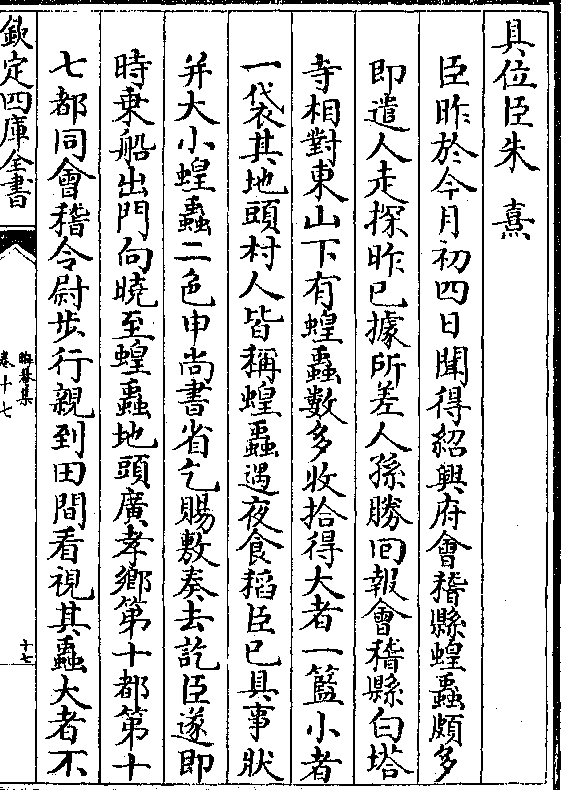 具位臣朱熹
臣昨於今月初四日聞得紹興府會稽縣蝗蟲頗多
即遣人走探昨已據所差人孫勝回報會稽縣白塔
寺相對東山下有蝗蟲數多收拾得大者一籃小者
一袋其地頭村人皆稱蝗蟲遇夜食稻臣已具事狀
并大小蝗蟲二色申尚書省乞賜敷奏去訖臣遂即
時乗船出門向曉至蝗蟲地頭廣孝鄉第十都第十
七都同會稽令尉步行親到田間看視其蟲大者不
欽定四庫全書
晦菴集
卷十七
十七